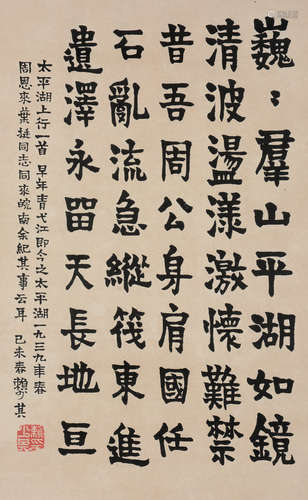 巍〻羣山平湖如鏡
清波盪漾激懷難禁
昔吾周公身肩國任
石亂流急縱筏東進
遺澤永留天長地亘
太平湖上行一首 早年青弋江即今之太平湖一九三九年春
周恩來葉挺同志同來皖南余紀其事云耳 己未春賴少其